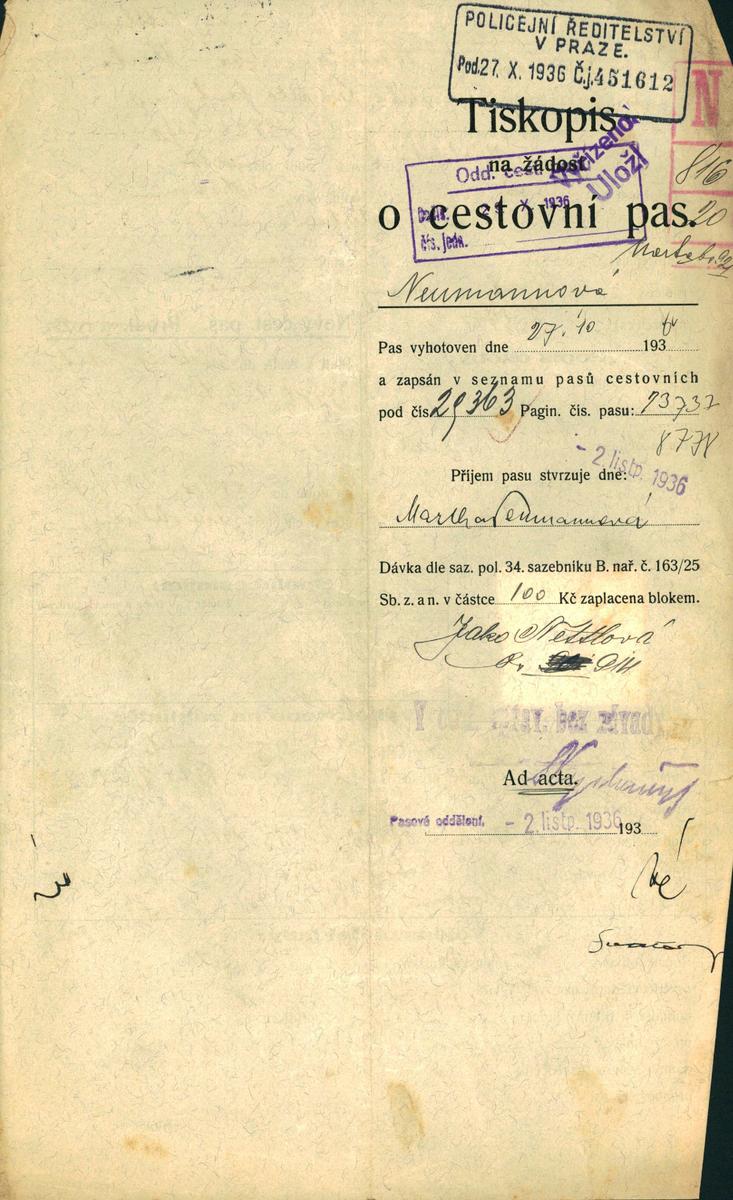 POLICEJNÍ ŘEDITELSTVÍ
V PRAZE.
Pod. 27. X. 1936 Č.j. 451612
N
Tiskopis
na žádost
Vyřízeno!
Uloží
Odd. cest
X 1936
čís. jedn.
816
20
o cestovní pas.
Neumannová
Pas vyhotoven dne 27. 10 193 6
a zapsán v seznamu pasů cestovních
pod čís. 29363 Pagin. čís. pasu: 73737
8778
- 2. listp. 1936
Příjem pasu stvrzuje dne:
Martha Neumannová
Dávka dle saz. pol. 34. sazebníku B. nař. č. 163/25
Sb. z. a n. v částce 100 Kč zaplacena blokem.
Jako Nettlová
Ad acta.
Pasové oddělení. - 2. listp. 1936 193